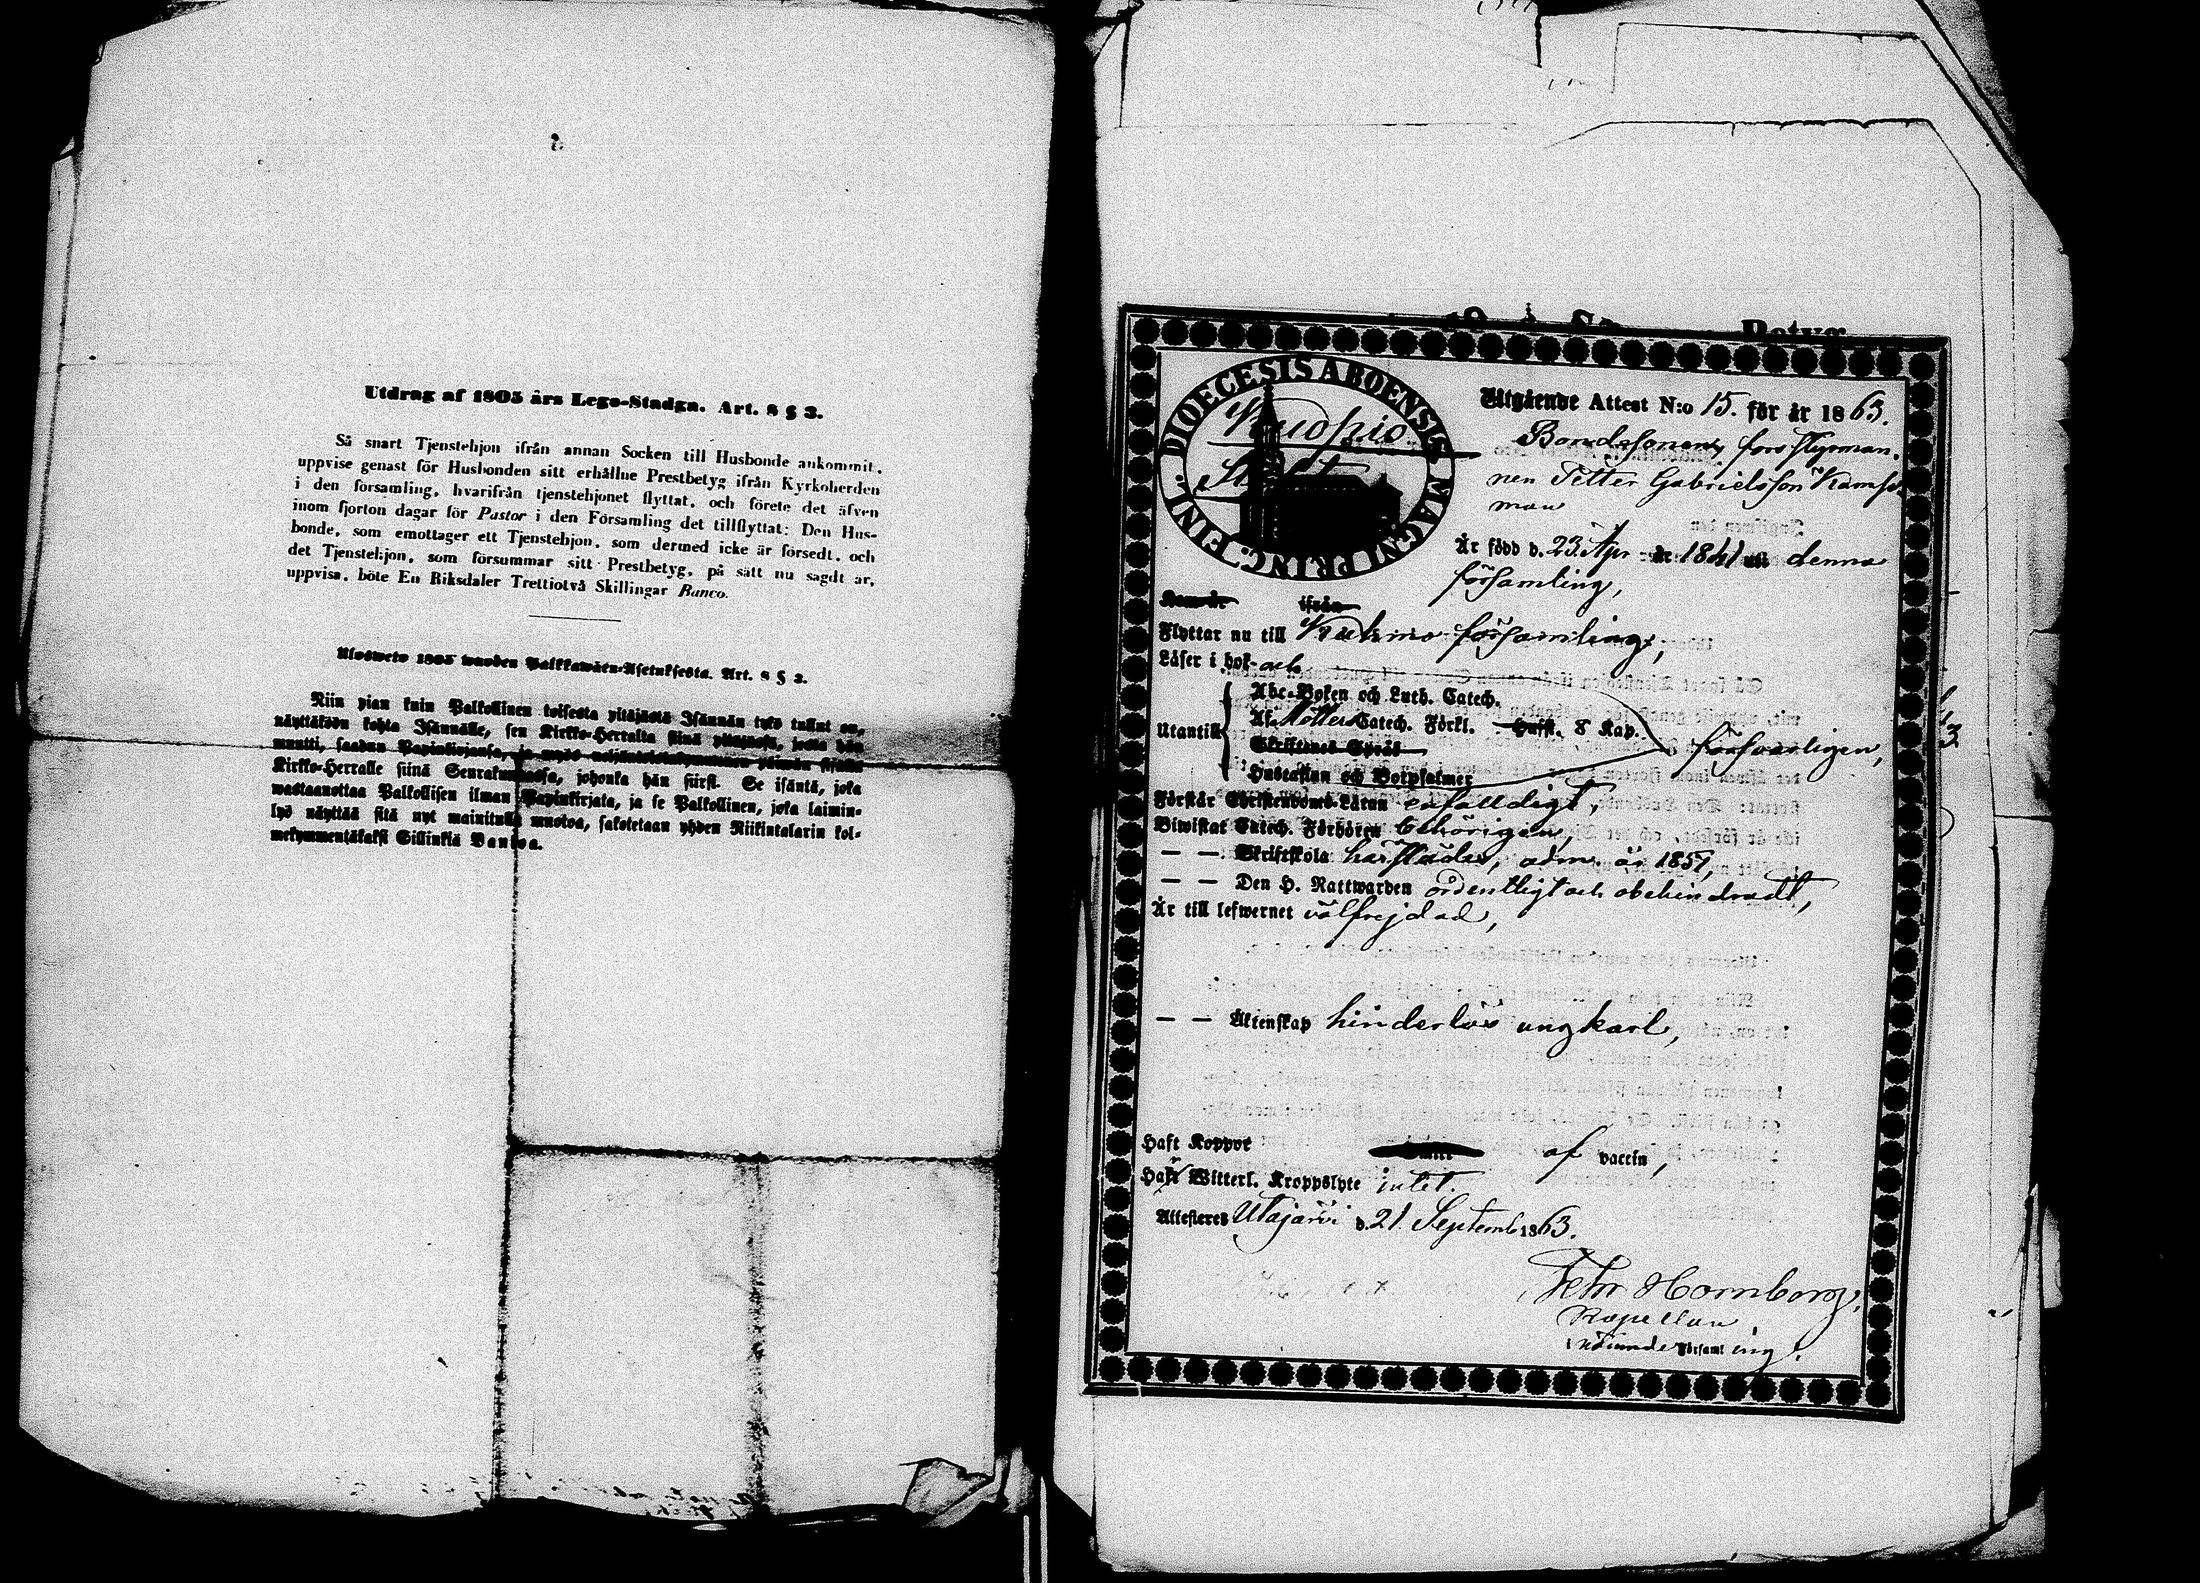 Utdrag af 1805 års Lego-Stadga. Art. 8 § 3.
Så snart Tjenstehjon ifrån annan Socken till Husbonde ankommit,
uppvise genast för Husbonden sitt erhållne Prestbetyg ifrån Kyrkoherden
i den församling, hvarifrån tjenstehjonet flyttat, och förete det äfven
inom fjorton dagar för Pastor i den Församling det tillflyttat: Den Hus-
bonde, som emottager ett Tjenstehjon, som dermed icke är försedt, och
det Tjenstehjon, som försummar sitt Prestbetyg, på sätt nu sagdt är,
uppvisa, böte En Riksdaler Trettiotvå Skillingar Banco.
Ulosweto 1805 wuoden Palkkawäen-Asetuksesta. Art. 8 § 3.
Niin pian kuin Palkollinen toisesta pitäjästä Isännän tykö tullut on,
näyttäköön kohta Isännälle, sen Kirkko-Herralta siinä pitäjäsä, josta hän
muutti, saadun Papinkirjansa, ja myös neljäntoistakymmenen päiwän sisällä
Kirkko-Herralle siinä Seurakunnasa, johonka hän siirsi. Se isäntä, joka
wastaanottaa Palkollisen ilman Papinkirjata, ja se Palkollinen, joka laimin-
lyö näyttää sitä nyt mainitulla muotoa, sakotetaan yhden Riikintalarin kol-
mekymmentäkaksi Sillinkiä Bankoa.
Betyg
DIOECESIS ABOENSIS MAGNI PRINC. FINL.
Kuopio
Stift
Utgående Attest N:o 15. för år 1863.
Bondesonen, förs styrman-
nen Petter Gabrielsson Kämsä-
man
Är född d. 23 Apr år 1841 uti denna
församling,
Kom år ifrån
Flyttar nu till Kuhmo församling,
Läser i bok och
Abc-Boken och Luth. Catech.
Utantill Af Möllers Catech. Förkl. Hufst. 8 Kap. försvarligen,
Skriftenes Språk
Hustaflan och Botpsalmer
Förstår Christendoms-Läran enfaldigt,
Biwistat Catech. Förhören behörigen,
— — Skriftskola har studer, adm. år 1857,
— — Den H. Nattwarden ordentligt och obehindradt,
Är till lefwernet välfrejdad,
— — Äktenskap hinderlös ungkarl,
Haft Koppor af vaccin,
Har Witterl. Kroppslyte intet.
Attesteres Utajärvi d. 21 Septemb 1863.
Hornborg.
Kapellan
Församling.